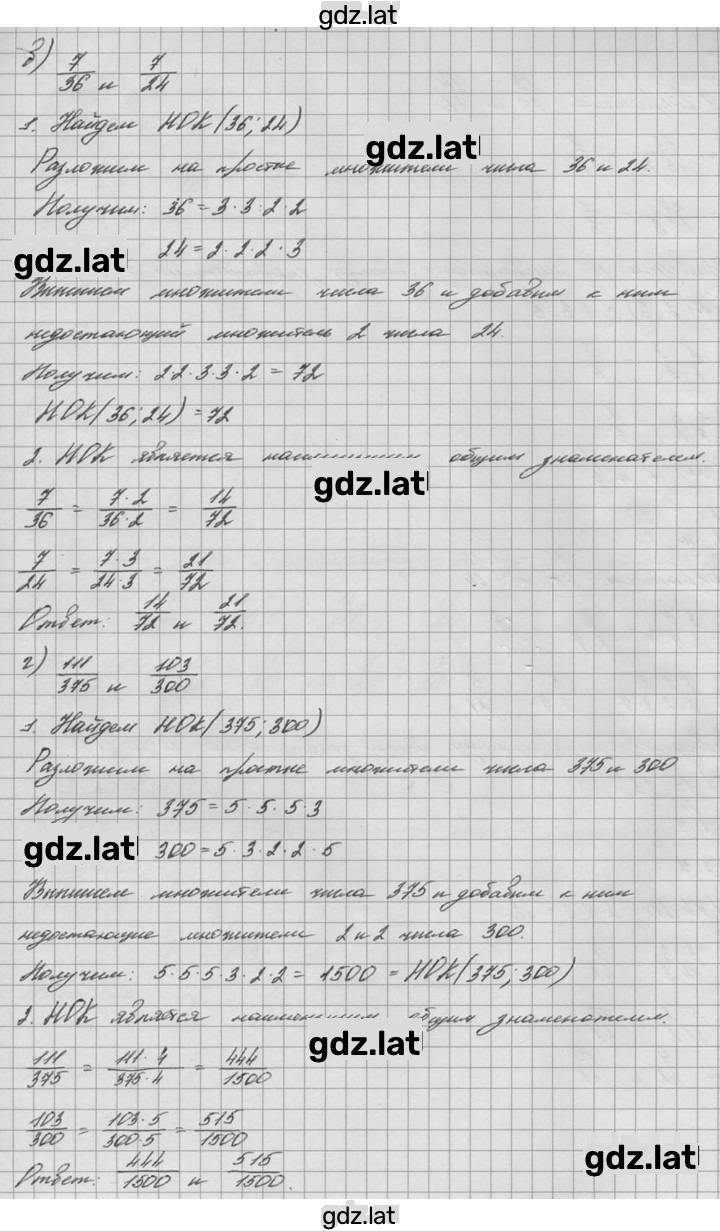 gdz.lat
в) 7/36 и 7/24
1. Найдем НОК(36; 24)
gdz.lat
Разложим на простые множители числа 36 и 24.
Получим: 36 = 3 · 3 · 2 · 2
gdz.lat 24 = 2 · 2 · 2 · 3
Выпишем множители числа 36 и добавим к ним
недостающий множитель 2 числа 24.
Получим: 2 · 2 · 3 · 3 · 2 = 72
НОК(36; 24) = 72
2. НОК является наименьшим общим знаменателем.
gdz.lat
7/36 = 7 · 2/36 · 2 = 14/72
7/24 = 7 · 3/24 · 3 = 21/72
Ответ: 14/72 и 21/72.
г) 111/375 и 103/300
1. Найдем НОК(375; 300)
Разложим на простые множители числа 375 и 300
Получим: 375 = 5 · 5 · 5 · 3
gdz.lat 300 = 5 · 3 · 2 · 2 · 5
Выпишем множители числа 375 и добавим к ним
недостающие множители 2 и 2 числа 300.
Получим: 5 · 5 · 5 · 3 · 2 · 2 = 1500 = НОК(375; 300)
2. НОК является наименьшим общим знаменателем.
gdz.lat
111/375 = 111 · 4/375 · 4 = 444/1500
103/300 = 103 · 5/300 · 5 = 515/1500
gdz.lat
Ответ: 444/1500 и 515/1500.
gdz.lat